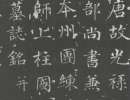 唐故光祿
部尚書兼
本州團練
師上柱國
墓誌銘并